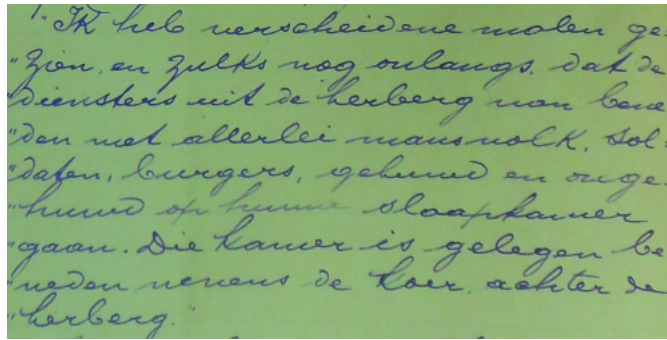 "Ik heb verscheidene malen ge-
"zien, en zulks nog onlangs, dat de
"diensters uit de herberg van bene
"den met allerlei mansvolk, sol-
"daten, burgers, gehuwd en onge-
"huwd op hunne slaapkamer
"gaan. Die kamer is gelegen be
"neden nevens de koer, achter de
"herberg."